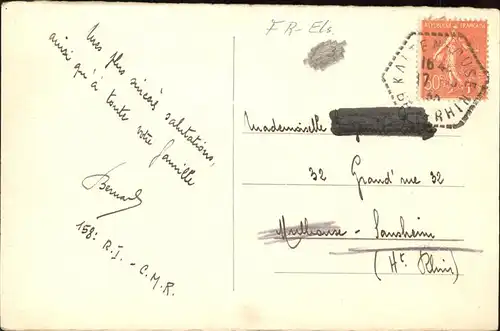 FR-Els.
Mes plus sincères salutations,
ainsi qu'à toute votre famille
Bernard
158e R.I. - C.M.R.
REPUBLIQUE FRANÇAISE
50c
KALTENHOUSE
16
17
BAS-RHIN
Mademoiselle
32 Grand'rue 32
Mulhouse - Sausheim
(Ht Rhin)